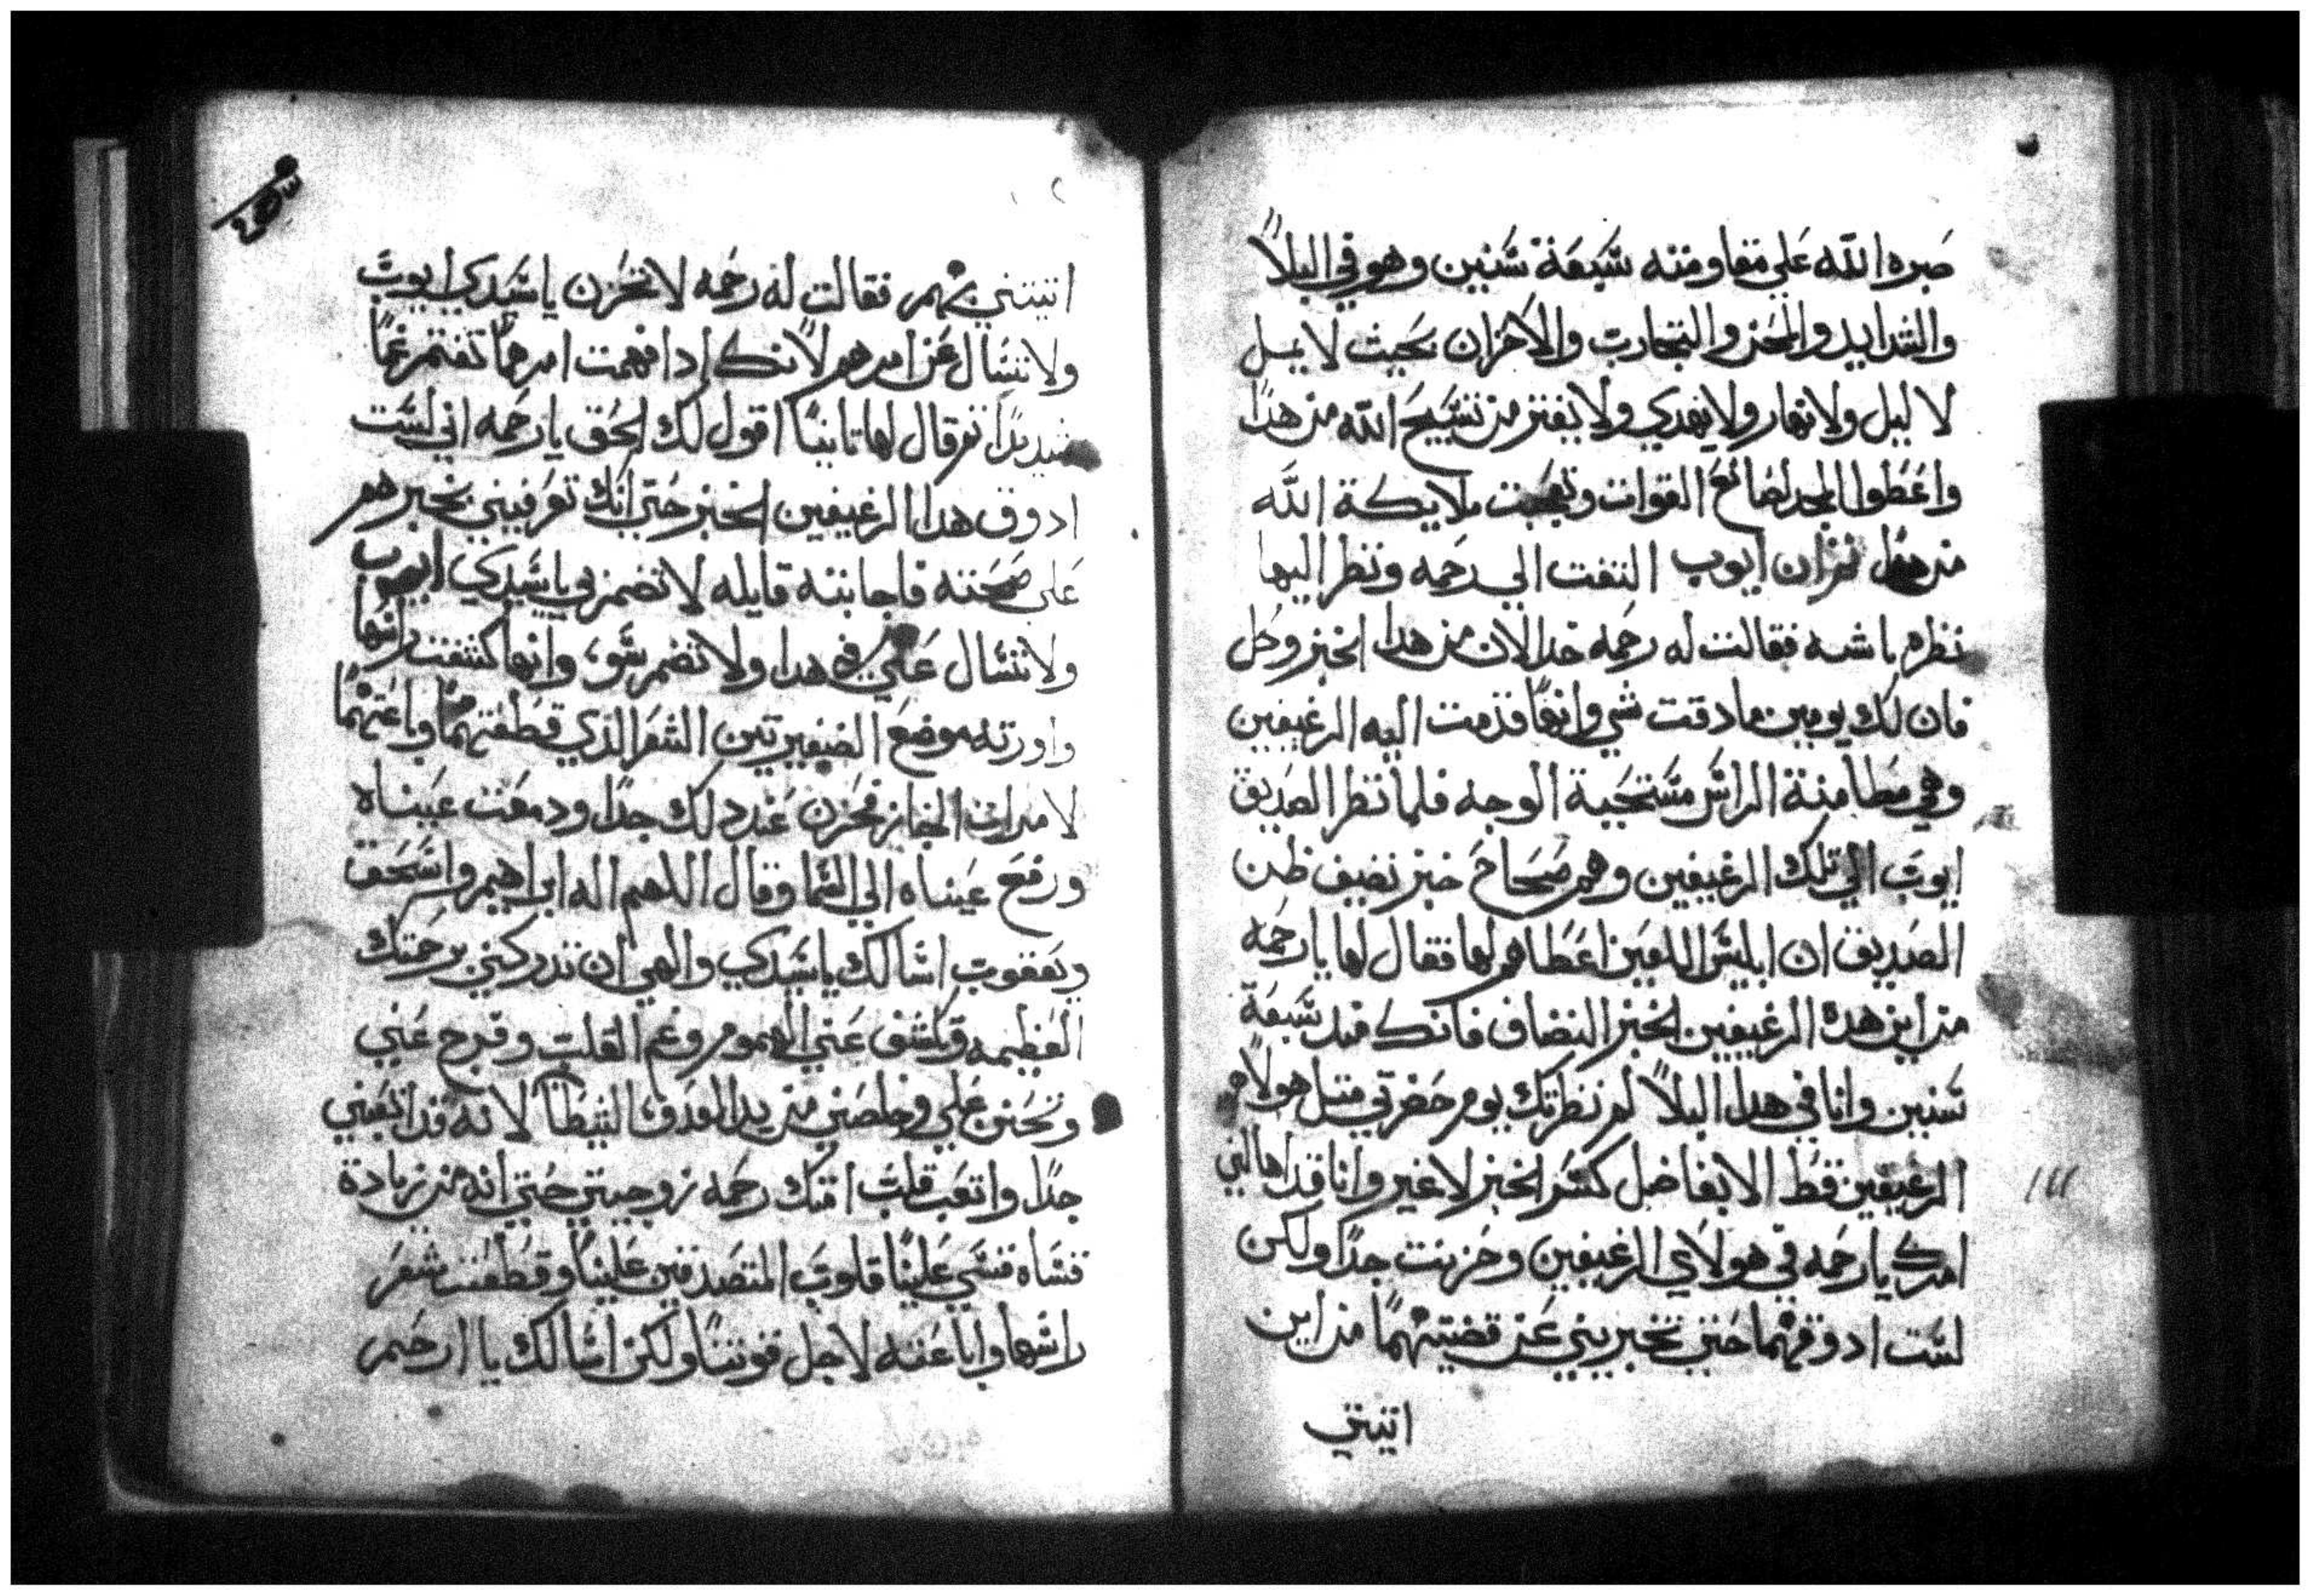 صبره الله علي مقاومته سبعة سنين وهو في البلاً
والشدايد والمحن والتجارب والاحزان بحيث لا يمل
لا ليل ولا نهار ولا يهدي ولا يفتر من تسبيح الله من هدا
واعطوا المجد لصانع القوات وتعجبت ملايكة الله
من ثم ان ايوب التفت الي رحمه ونظر اليها
نظره باشه فقالت له رحمه خد الان من هدا الخبز وكل
فان لك يومين ما دقت شي وانها قدمت اليه الرغيفين
وهي مطامنة الراس مستحية الوجه فلما نظر الصديق
ايوب الي تلك الرغيفين وهم صحاح خبز نضيف ظن
الصديق ان ابليس اللعين اعطاهم لها فقال لها يا رحمه
من اين هده الرغيفين الخبز النضاف فانك مند سبعة
سنين وانا في هدا البلاً لم نظرتك يوم حضرتي متل هولاء
الرغيفين قط الا بفاضل كسر الخبز لا غير وانا قد اهالني
امرك يا رحمه في هولاي الرغيفين وحزنت جداً ولكن
لست ادوقهما حتي تخبريني عن قضيتهما من اين
اتيتني
اتيتني بهم فقالت له رحمه لا تحزن يا سيدي ايوب
ولا تسال عن امرهم لانك ادا فهمت امرهما تغتم غماً
شديداً ثم قال لها تانياً اقول لك الحق يا رحمه اني لست
ادوق هدا الرغيفين الخبز حتي انك تعرفيني بخبرهم
علي صحته فاجابته قايله لا تضمر بي يا سيدي ايوب
ولا تسال عن هدا ولا تضمر سو، وانها كشفت راسها
واورته موضع الضفيرتين الشعر الذي قطعتهما وباعتهما
لامراة الخباز فحزن عند دلك جدا ودمعت عيناه
ورفع عيناه الي السما وقال اللهم اله ابراهيم واسحق
ويعقوب اسالك يا سيدي والهي ان تدركني برحمتك
العظيمه وتكشف عني الهموم وغم القلب وفرج عني
وتحنن علي وخلصني من يد العدو الشيطان لانه قد اتعبني
جداً واتعب قلب امتك رحمه زوجتي حتي انه من زيادة
قساه قسي علينا قلوب المتصدقين علينا وقطعت شعر
راسها وباعته لاجل قوتنا ولكن اسالك يا ارحم